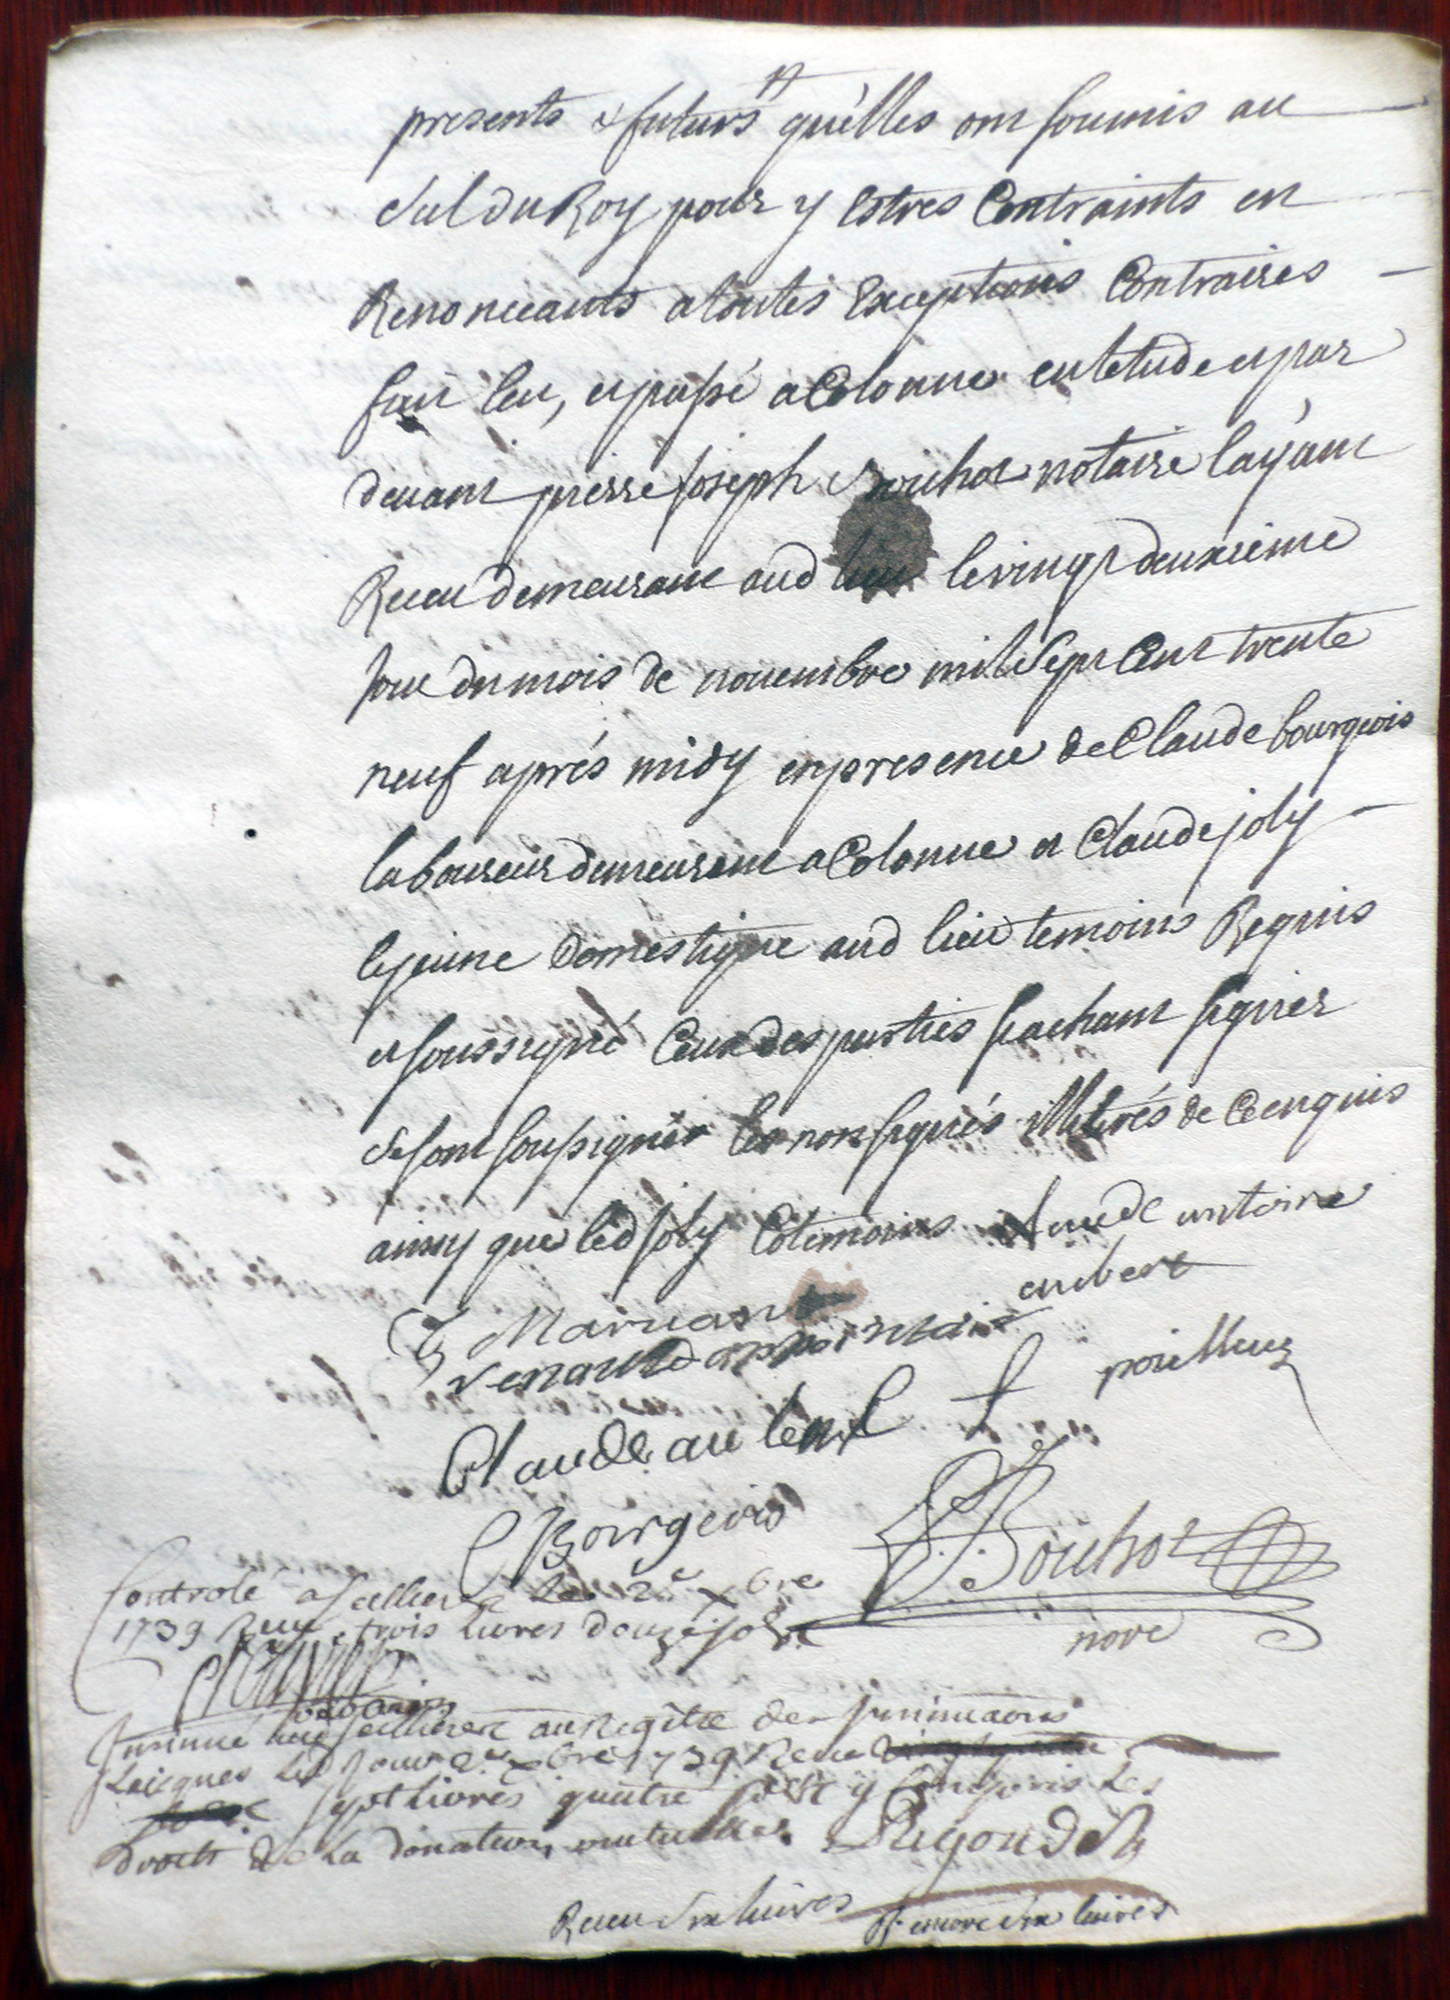 presents & futurs qu'elles ont soumis au
scel du Roy pour y estres Contraints en
Renonceants a toutes Exceptions Contraires
fait leu, et passé a Colonne en letude et par
devant pierre joseph Bouhot notaire layant
Receu demeurant aud lieu le vingt deuxieme
jour du mois de nouembre mil sept Cent trente
neuf aprés midy en presence de Claude bourgeois
laboureur demeurant a Colonne et Claude joly
le jeune domestique aud lieu temoins Requis
et soussigné Ceux des parties sachant signer
se sont soussignés les non signés Illitérés de Ce enquis
ainsy que led joly Cotemoins claude antoine
aubert
J Maruant
renauld
pouilleuz
Claude au
C Bourgeois
P. J. Bouhot
nore
Controlé a Sellieres Le 2e xbre
1739 Receu trois Livres douze sols
Insinué aud Sellieres au Registre des Insinuaons
Laicques Led Jour 2e xbre 1739 Receu
Sept Livres quatre sols y Compris Les
droits de La donation mutuelle.
Receu six livres R encore six livres